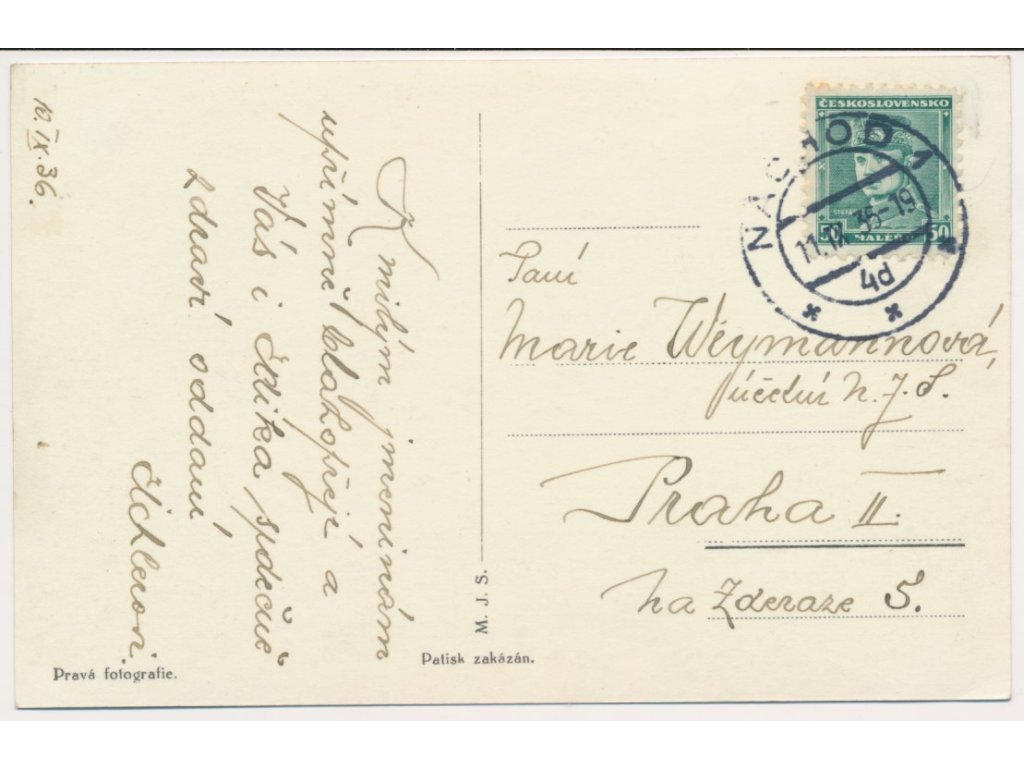 10.IX.36.
K milým jmeninám
upřímně blahopřejí a
Vás i Edíka srdečně
zdraví oddaní
Eichlerovi.
Pravá fotografie.
M. J. S.
Patisk zakázán.
ČESKOSLOVENSKO
50 HALÉŘŮ 50
NÁCHOD 1
11.IX.36-19
4d
Paní
Marie Weymannová,
účední N.J.S.
Praha II.
Na Zderaze 5.